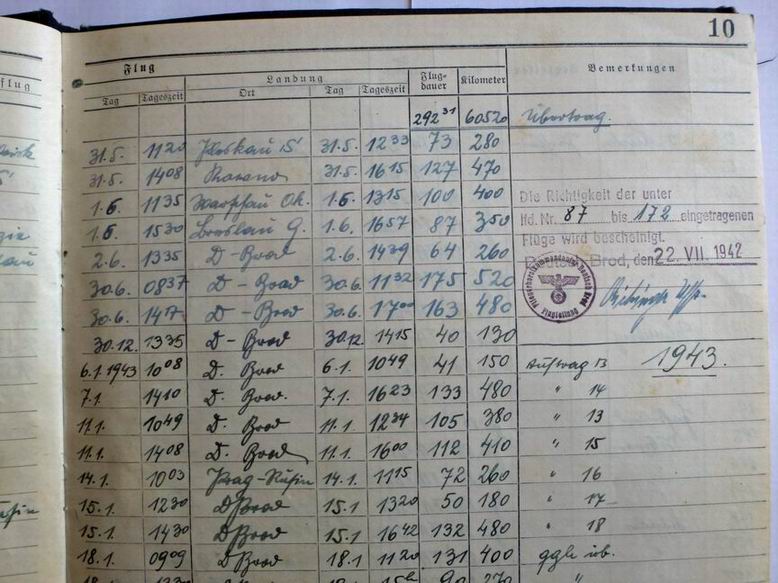 10
Flug
Landung
Flug-
dauer
Kilometer
Bemerkungen
flug
Tag Tageszeit Ort Tag Tageszeit
292 31 60520 Übertrag.
31.5. 1120 31.5. 1233 73 280
31.5. 1408 31.5. 1615 127 470
1.6 1135 Warschau Ok. 1.6. 1315 100 400
1.6 1530 Breslau G. 1.6. 1657 87 350
Die Richtigkeit der unter
lfd. Nr. 87 bis 172 eingetragenen
Flüge wird bescheinigt.
Brod, den 22. VII. 1942
2.6. 1335 D-Brod 2.6. 1439 64 260
30.6. 0837 D-Brod 30.6. 1132 175 520
30.6. 1417 D-Brod 30.6. 1700 163 480
30.12. 1335 D-Brod 30.12. 1415 40 130
6.1.1943 1008 D. Brod 6.1. 1049 41 150 Auftrag 13 1943.
7.1. 1410 D. Brod. 7.1. 1623 133 480 " 14
11.1. 1049 D. Brod 11.1. 1234 105 380 " 13
11.1. 1408 D. Brod 11.1. 1600 112 410 " 15
14.1. 1003 Prag-Rusin 14.1. 1115 72 260 " 16
15.1. 1230 D Brod 15.1 1320 50 180 " 17
15.1. 1430 D Brod 15.1 1642 132 480 " 18
18.1. 0909 D Brod 18.1 1120 131 400